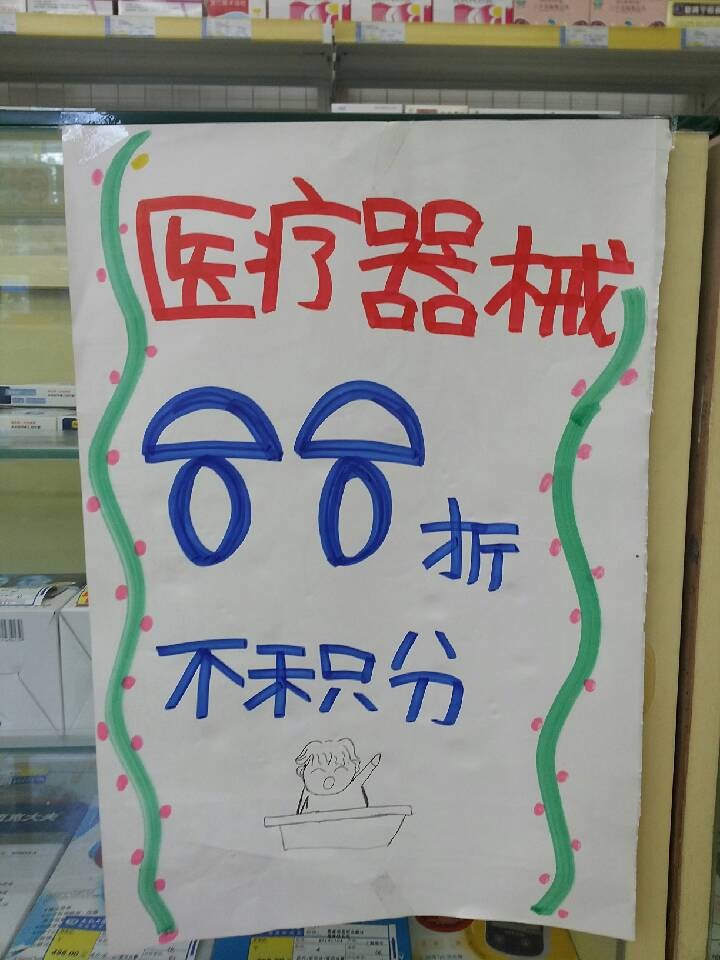 医疗器械
88折
不积分